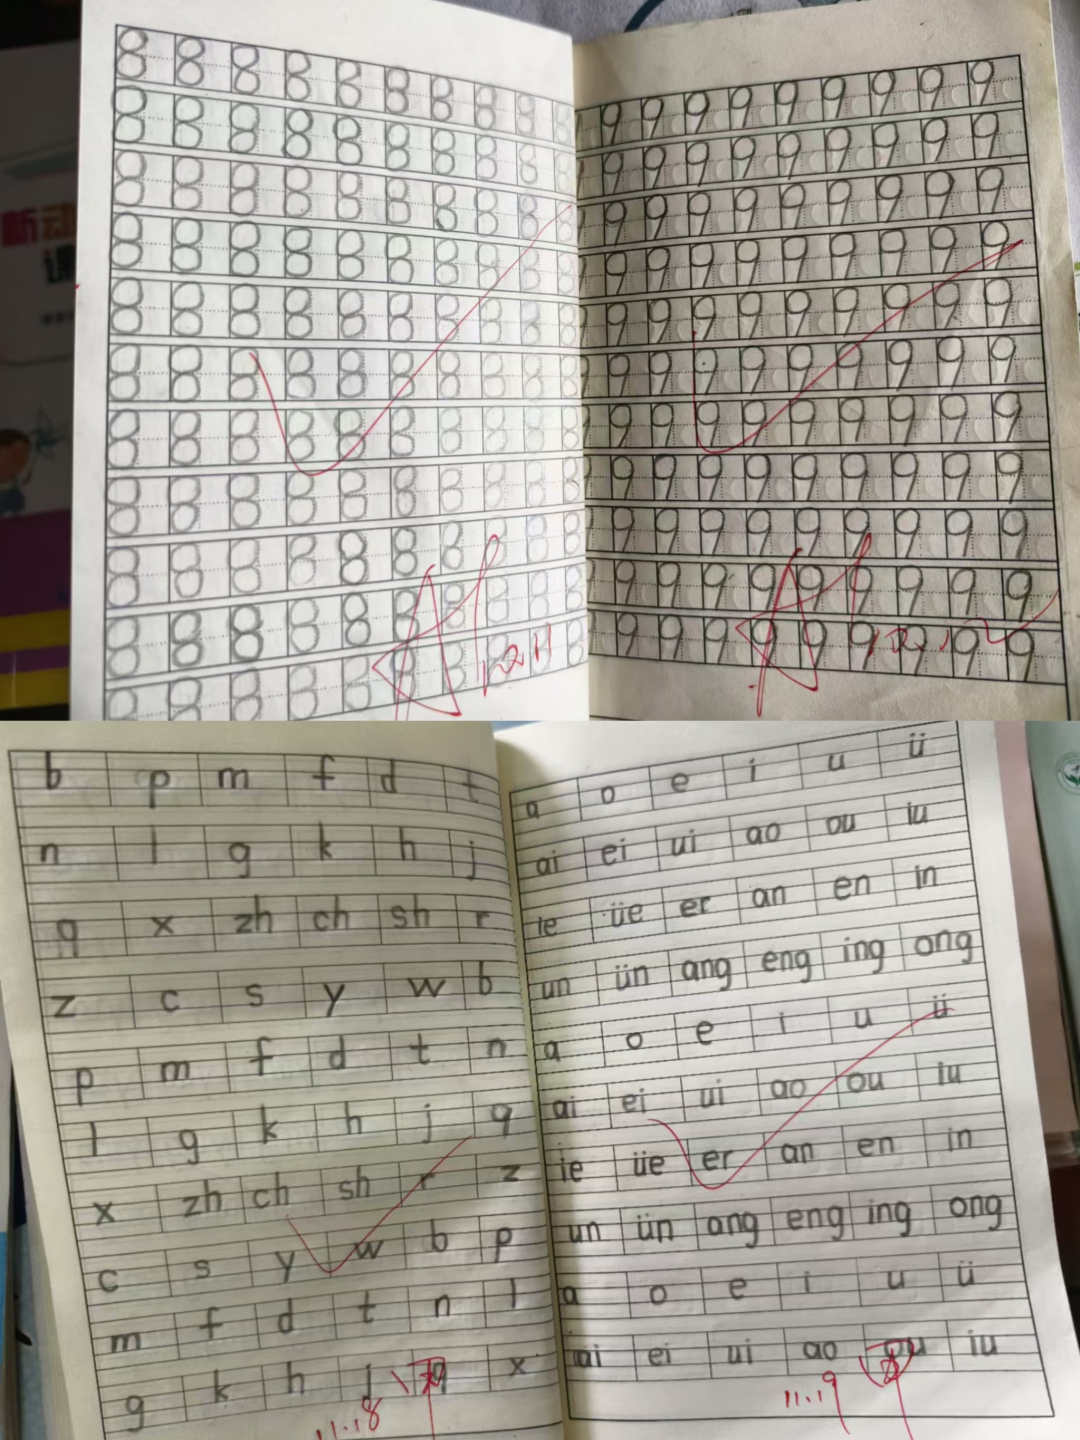 新动
课
8 8 8 8 8 8 8 8 8 8
8 8 8 8 8 8 8 8 8 8
8 8 8 8 8 8 8 8 8 8
8 8 8 8 8 8 8 8 8 8
8 8 8 8 8 8 8 8 8 8
8 8 8 8 8 8 8 8 8 8
8 8 8 8 8 8 8 8 8 8
8 8 8 8 8 8 8 8 8 8
8 8 8 8 8 8 8 8 8 8
8 8 8 8 8 8 8 8 8 8
8 8 8 8 8 8 8 8 8 8
12.11
9 9 9 9 9 9 9 9 9
9 9 9 9 9 9 9 9 9
9 9 9 9 9 9 9 9 9
9 9 9 9 9 9 9 9 9
9 9 9 9 9 9 9 9 9
9 9 9 9 9 9 9 9 9
9 9 9 9 9 9 9 9 9
9 9 9 9 9 9 9 9 9
9 9 9 9 9 9 9 9 9
9 9 9 9 9 9 9 9 9
9 9 9 9 9 9 9 9 9
12.12
b p m f d t
n l g k h j
q x zh ch sh r
z c s y w b
p m f d t n
l g k h j q
x zh ch sh r z
c s y w b p
m f d t n l
g k h j q x
11.18
a o e i u ü
ai ei ui ao ou iu
ie üe er an en in
un ün ang eng ing ong
a o e i u ü
ai ei ui ao ou iu
ie üe er an en in
un ün ang eng ing ong
a o e i u ü
ai ei ui ao ou iu
11.19